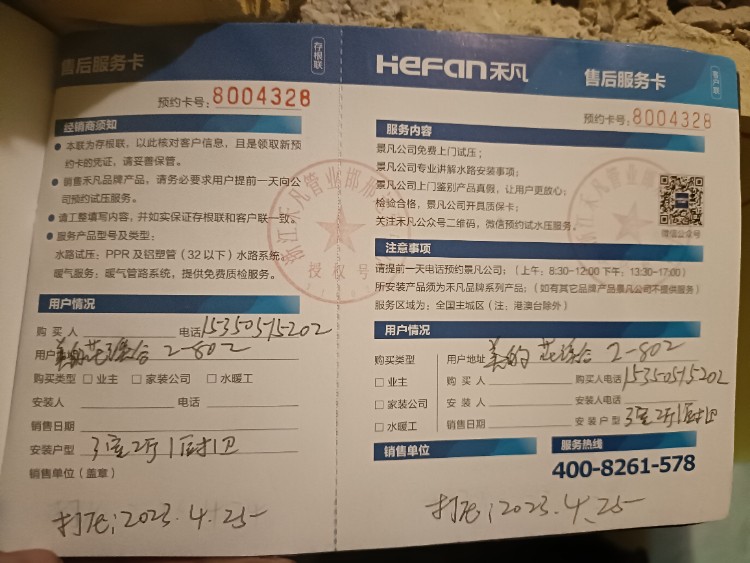 售后服务卡
存根联
预约卡号:8004328
经销商须知
● 本联为存根联，以此核对客户信息，且是领取新预
约卡的凭证，请妥善保管。
● 销售禾凡品牌产品，请务必要求用户提前一天向公
司预约试压服务。
● 请工整填写内容，并如实保证存根联和客户联一致。
● 服务产品型号及类型:
水路试压：PPR及铝塑管（32以下）水路系统。
暖气服务：暖气管路系统，提供免费质检服务。
用户情况
购买人 电话 15350515202
用户 2-802
购买类型 □ 业主 □ 家装公司 □ 水暖工
安装人 电话
销售日期
安装户型 3室2厅1厨1卫
销售单位（盖章）
打压:2023.4.25
HeFan禾凡
售后服务卡
客户联
预约卡号:8004328
服务内容
景凡公司免费上门试压；
景凡公司专业讲解水路安装事项；
景凡公司上门鉴别产品真假，让用户更放心；
检验合格，景凡公司开具质保卡；
关注禾凡公众号二维码，微信预约试水压服务。
微信公众号
注意事项
请提前一天电话预约景凡公司：（上午：8:30-12:00 下午：13:30-17:00）
所安装产品须为禾凡品牌系列产品：（如有其它品牌产品景凡公司不提供服务）
服务区域为：全国主城区（注：港澳台除外）
用户情况
购买类型
□ 业主
□ 家装公司
□ 水暖工
用户地址 美的 2-802
购买人 购买人电话 15350515202
安装人 安装人电话
销售日期 安装户型 3室2厅1厨1卫
销售单位
服务热线
400-8261-578
打压:2023.4.25
浙江禾凡管业邯
授权号